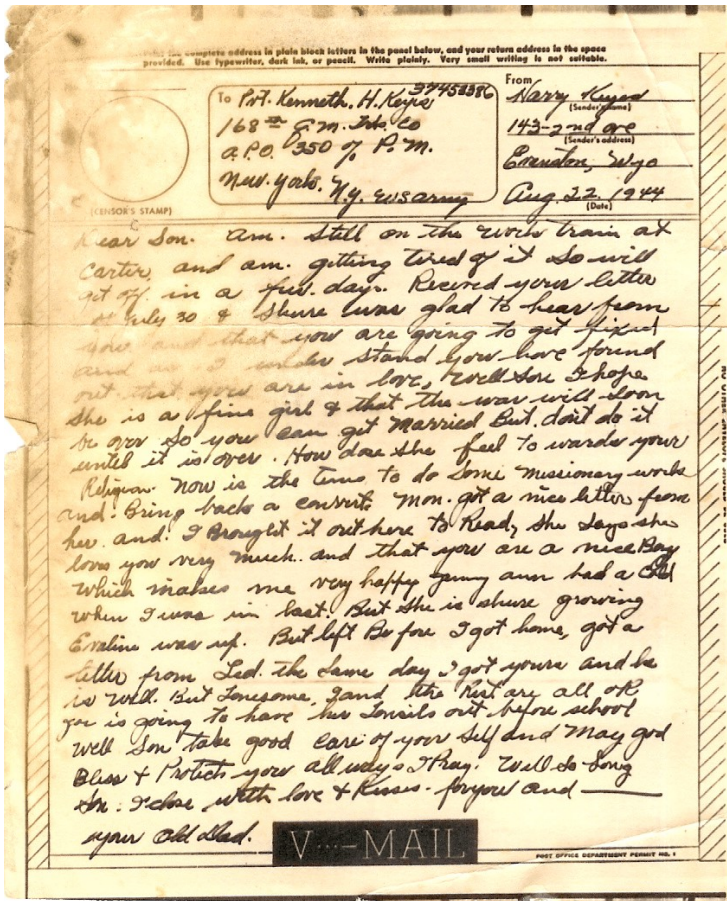 complete address in plain block letters in the panel below, and your return address in the space
provided. Use typewriter, dark ink, or pencil. Write plainly. Very small writing is not suitable.
To Pvt. Kenneth. H. Keyes 37453386
168th C.M. Co
A.P.O. 350 % P.M.
New. York. N.Y. U.S. army
From
Harry Keyes
(Sender's name)
143-2nd ave
(Sender's address)
Evanston, Wyo
Aug 22, 1944
(Date)
(CENSOR'S STAMP)
Dear Son. am. still on the work train at
Carter, and am. getting tired of it So will
get off. in a few. days. Recived your letter
of July 30 & shure was glad to hear from
you and that you are going to get fixed
and as I under stand you have found
out that your are in love, Well Son I hope
she is a fine girl & that the war will soon
be over so you can get Married But. dont do it
until it is over. How dose she feel to wards your
Religion. Now is the time to do some Missionary work
and. Bring back a convert. Mom. got a nice letter from
her. and. I Brought it out here to Read, she says she
loves you very much. and that you are a nice Boy
which makes me very happy ann had a Cold
when I was in last. But she is shure growing
Evaline was up. But left Before I got home, got a
letter from Led. the same day I got yours and he
is Well. But Lonesome, and the Rest are all OK
is going to have her Tonsils out before school
Well Son take good care of your Self and May god
Bless & Protect you all ways I Pray. Well So Long
Son. I close with love & Kisses. for you and —
your Old Dad.
V···— MAIL
POST OFFICE DEPARTMENT PERMIT NO. 1